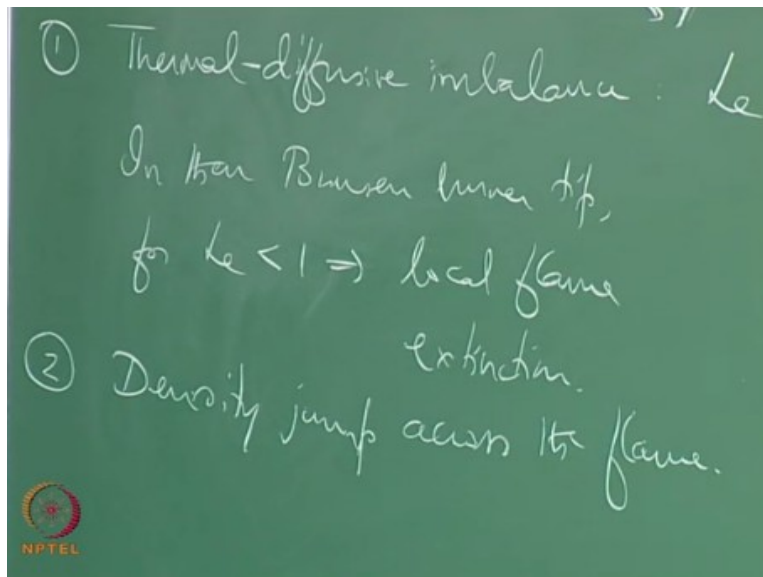 ① Thermal-diffusive imbalance : Le
In the Bunsen burner tip,
for Le < 1 ⇒ local flame
extinction.
② Density jump across the flame.
NPTEL